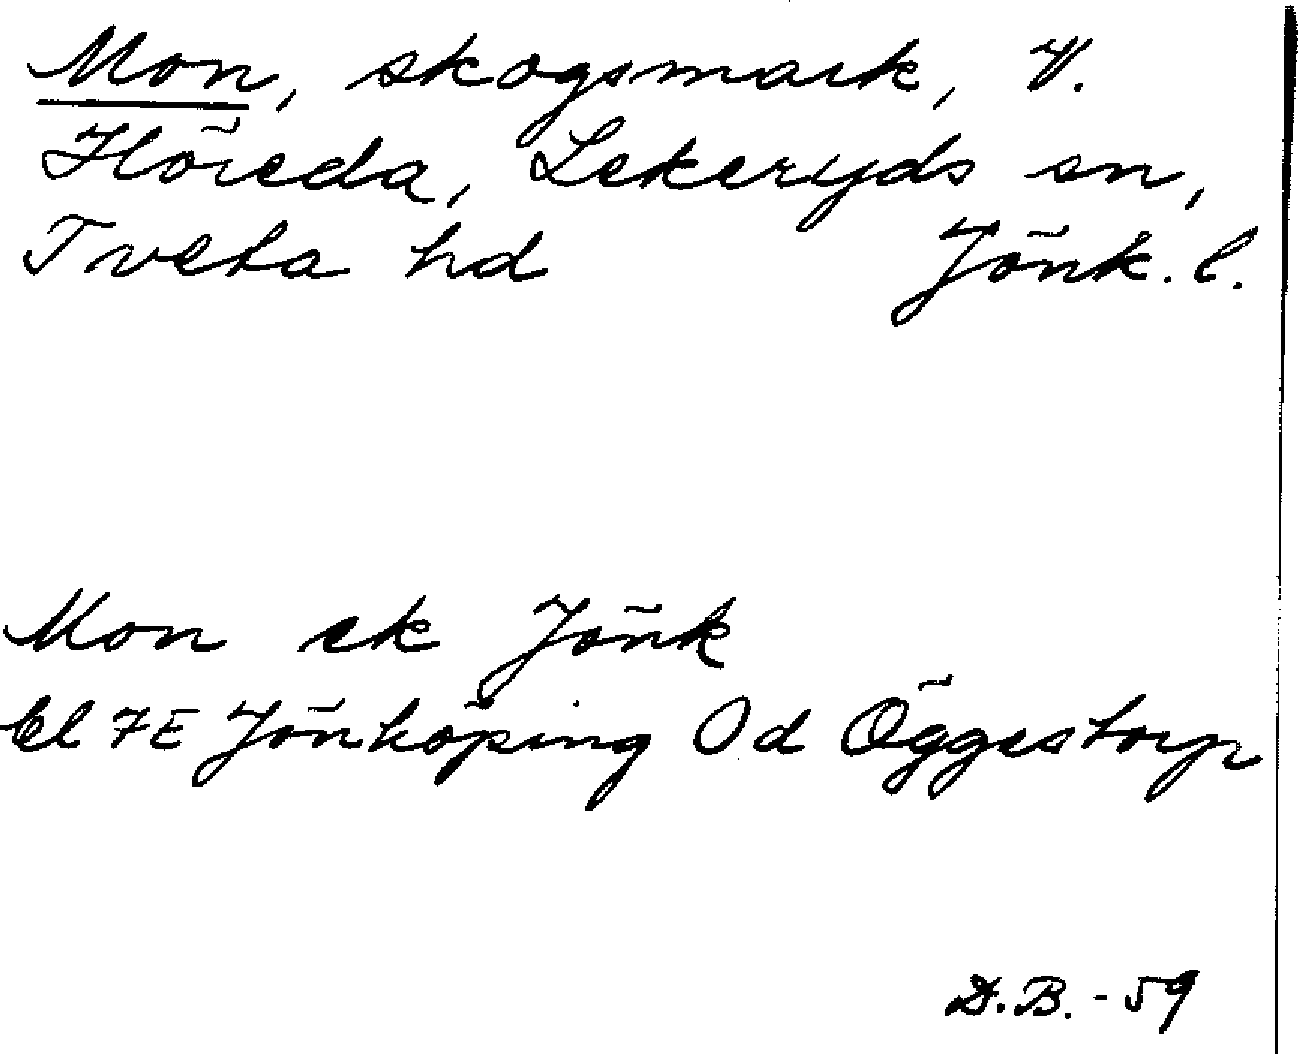 Mon, skogsmark, V.
Höreda, Lekeryds sn,
Tveta hd Jönk. l.
Mon ek Jönk
bl 7E Jönköping Od Öggestorp
D.B. - 59